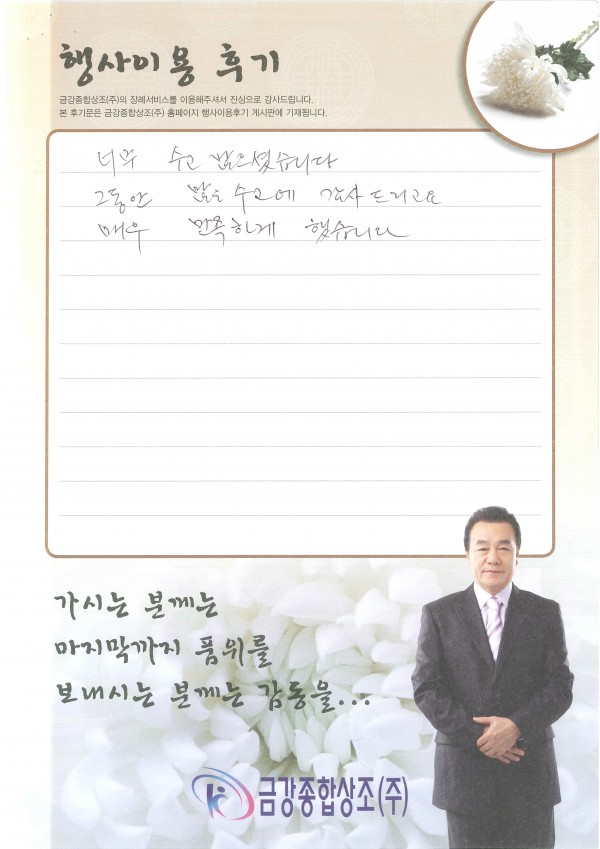 행사이용 후기
금강종합상조(주)의 장례서비스를 이용해주셔서 진심으로 감사드립니다.
본 후기문은 금강종합상조(주) 홈페이지 행사이용후기 게시판에 기재됩니다.
너무 수고 많으셨습니다
그동안 많은 수고에 감사드리고요
매우 만족하게 했습니다
가시는 분께는
마지막까지 품위를
보내시는 분께는 감동을...
금강종합상조(주)